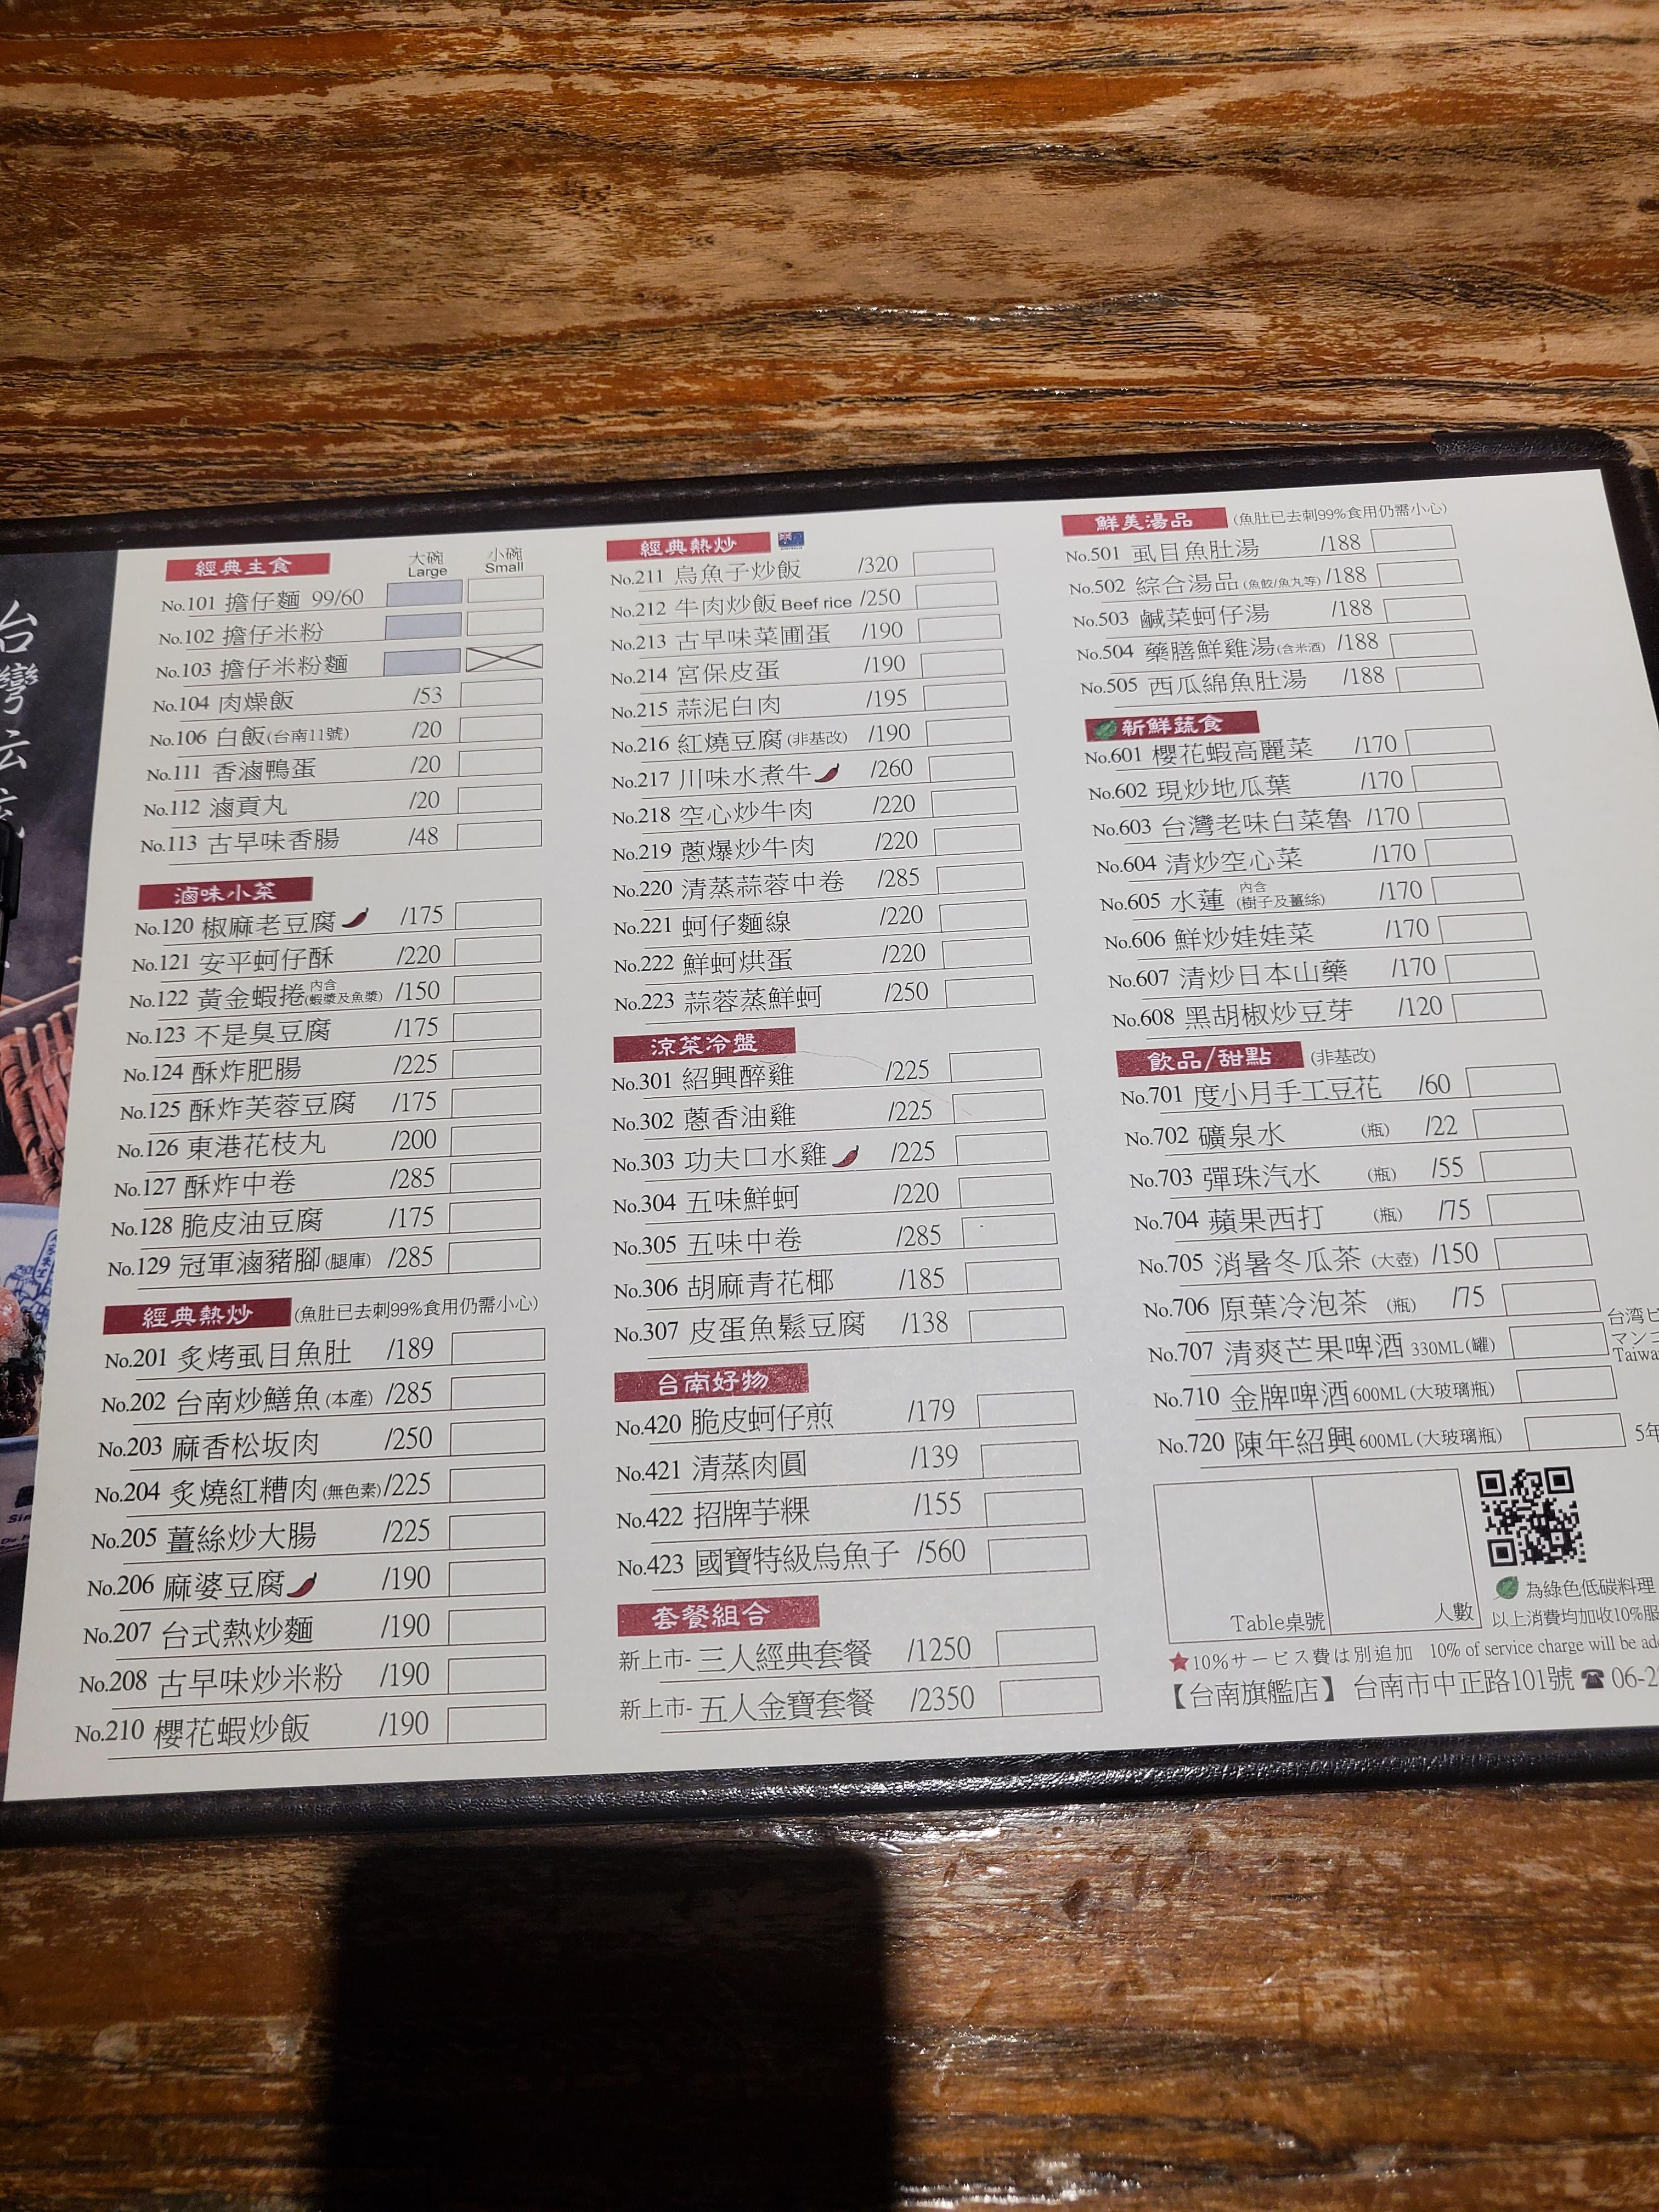 台灣
經典主食 大碗 小碗
Large Small
No.101 擔仔麵 99/60
No.102 擔仔米粉
No.103 擔仔米粉麵
No.104 肉燥飯 /53
No.106 白飯(台南11號) /20
No.111 香滷鴨蛋 /20
No.112 滷貢丸 /20
No.113 古早味香腸 /48
滷味小菜
No.120 椒麻老豆腐 /175
No.121 安平蚵仔酥 /220
No.122 黃金蝦捲 內含(蝦漿及魚漿) /150
No.123 不是臭豆腐 /175
No.124 酥炸肥腸 /225
No.125 酥炸芙蓉豆腐 /175
No.126 東港花枝丸 /200
No.127 酥炸中卷 /285
No.128 脆皮油豆腐 /175
No.129 冠軍滷豬腳(腿庫) /285
經典熱炒 (魚肚已去刺99%食用仍需小心)
No.201 炙烤虱目魚肚 /189
No.202 台南炒鱔魚(本產) /285
No.203 麻香松坂肉 /250
No.204 炙燒紅糟肉(無色素) /225
No.205 薑絲炒大腸 /225
No.206 麻婆豆腐 /190
No.207 台式熱炒麵 /190
No.208 古早味炒米粉 /190
No.210 櫻花蝦炒飯 /190
經典熱炒
No.211 烏魚子炒飯 /320
No.212 牛肉炒飯 Beef rice /250
No.213 古早味菜圃蛋 /190
No.214 宮保皮蛋 /190
No.215 蒜泥白肉 /195
No.216 紅燒豆腐(非基改) /190
No.217 川味水煮牛 /260
No.218 空心炒牛肉 /220
No.219 蔥爆炒牛肉 /220
No.220 清蒸蒜蓉中卷 /285
No.221 蚵仔麵線 /220
No.222 鮮蚵烘蛋 /220
No.223 蒜蓉蒸鮮蚵 /250
涼菜冷盤
No.301 紹興醉雞 /225
No.302 蔥香油雞 /225
No.303 功夫口水雞 /225
No.304 五味鮮蚵 /220
No.305 五味中卷 /285
No.306 胡麻青花椰 /185
No.307 皮蛋魚鬆豆腐 /138
台南好物
No.420 脆皮蚵仔煎 /179
No.421 清蒸肉圓 /139
No.422 招牌芋粿 /155
No.423 國寶特級烏魚子 /560
套餐組合
新上市-三人經典套餐 /1250
新上市-五人金寶套餐 /2350
鮮美湯品 (魚肚已去刺99%食用仍需小心)
No.501 虱目魚肚湯 /188
No.502 綜合湯品(魚餃/魚丸等) /188
No.503 鹹菜蚵仔湯 /188
No.504 藥膳鮮雞湯(含米酒) /188
No.505 西瓜綿魚肚湯 /188
新鮮蔬食
No.601 櫻花蝦高麗菜 /170
No.602 現炒地瓜葉 /170
No.603 台灣老味白菜魯 /170
No.604 清炒空心菜 /170
No.605 水蓮 內含(樹子及薑絲) /170
No.606 鮮炒娃娃菜 /170
No.607 清炒日本山藥 /170
No.608 黑胡椒炒豆芽 /120
飲品/甜點 (非基改)
No.701 度小月手工豆花 /60
No.702 礦泉水 (瓶) /22
No.703 彈珠汽水 (瓶) /55
No.704 蘋果西打 (瓶) /75
No.705 消暑冬瓜茶 (大壺) /150
No.706 原葉冷泡茶 (瓶) /75
No.707 清爽芒果啤酒 330ML(罐)
台湾ビ
マンゴ
Taiwa
No.710 金牌啤酒 600ML(大玻璃瓶)
No.720 陳年紹興 600ML(大玻璃瓶) 5年
Table桌號 人數
為綠色低碳料理
以上消費均加收10%服
★10%サービス費は別追加 10% of service charge will be ad
【台南旗艦店】 台南市中正路101號 ☎ 06-2